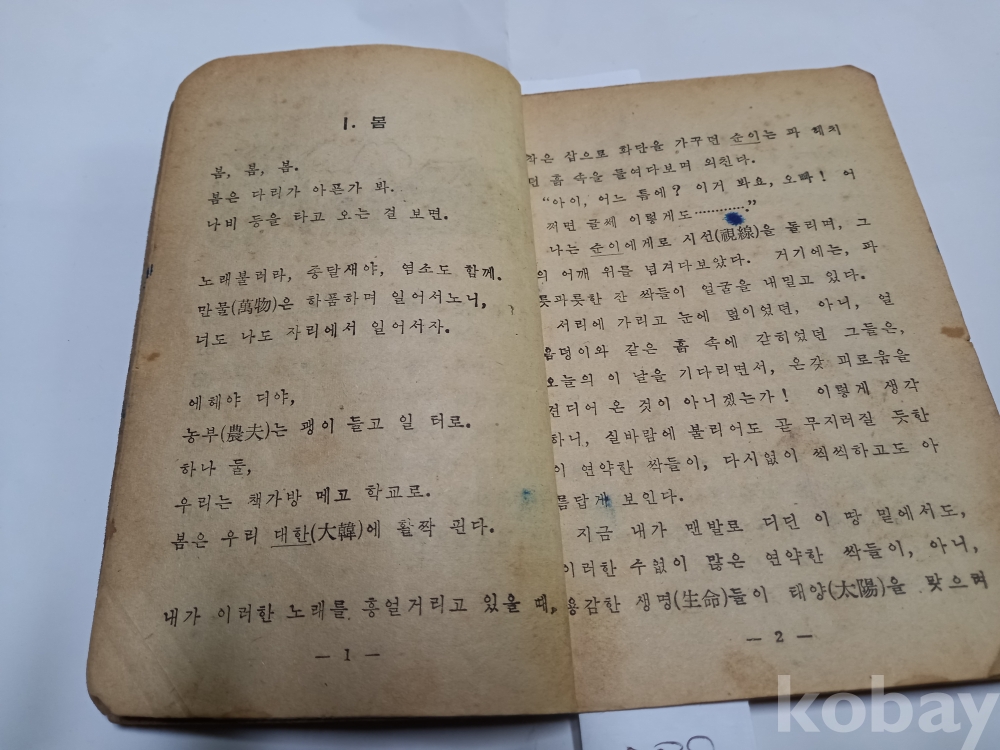 1. 봄
봄, 봄, 봄.
봄은 다리가 아픈가 봐.
나비 등을 타고 오는 걸 보면.
노래불러라, 종달새야, 염소도 함께.
만물(萬物)은 하품하며 일어서노니,
너도 나도 자리에서 일어서자.
에헤야 디야,
농부(農夫)는 괭이 들고 일 터로.
하나 둘,
우리는 책가방 메고 학교로.
봄은 우리 대한(大韓)에 활짝 핀다.
내가 이러한 노래를 흥얼거리고 있을 때,
— 1 —
작은 삽으로 화단을 가꾸던 순이는 파 헤치
던 흙 속을 들여다보며 외친다.
“아이, 어느 틈에? 이거 봐요, 오빠! 어
쩌면 글쎄 이렇게도…………”
나는 순이에게로 시선(視線)을 돌리며, 그
의 어깨 위를 넘겨다보았다. 거기에는, 파
릇파릇한 잔 싹들이 얼굴을 내밀고 있다.
서리에 가리고 눈에 덮이었던, 아니, 얼
음덩이와 같은 흙 속에 갇히었던 그들은,
오늘의 이 날을 기다리면서, 온갖 괴로움을
견디어 온 것이 아니겠는가! 이렇게 생각
하니, 실바람에 불리어도 곧 무지러질 듯한
이 연약한 싹들이, 다시없이 씩씩하고도 아
름답게 보인다.
지금 내가 맨발로 디던 이 땅 밑에서도,
이러한 수없이 많은 연약한 싹들이, 아니,
용감한 생명(生命)들이 태양(太陽)을 맞으려
— 2 —
kobay